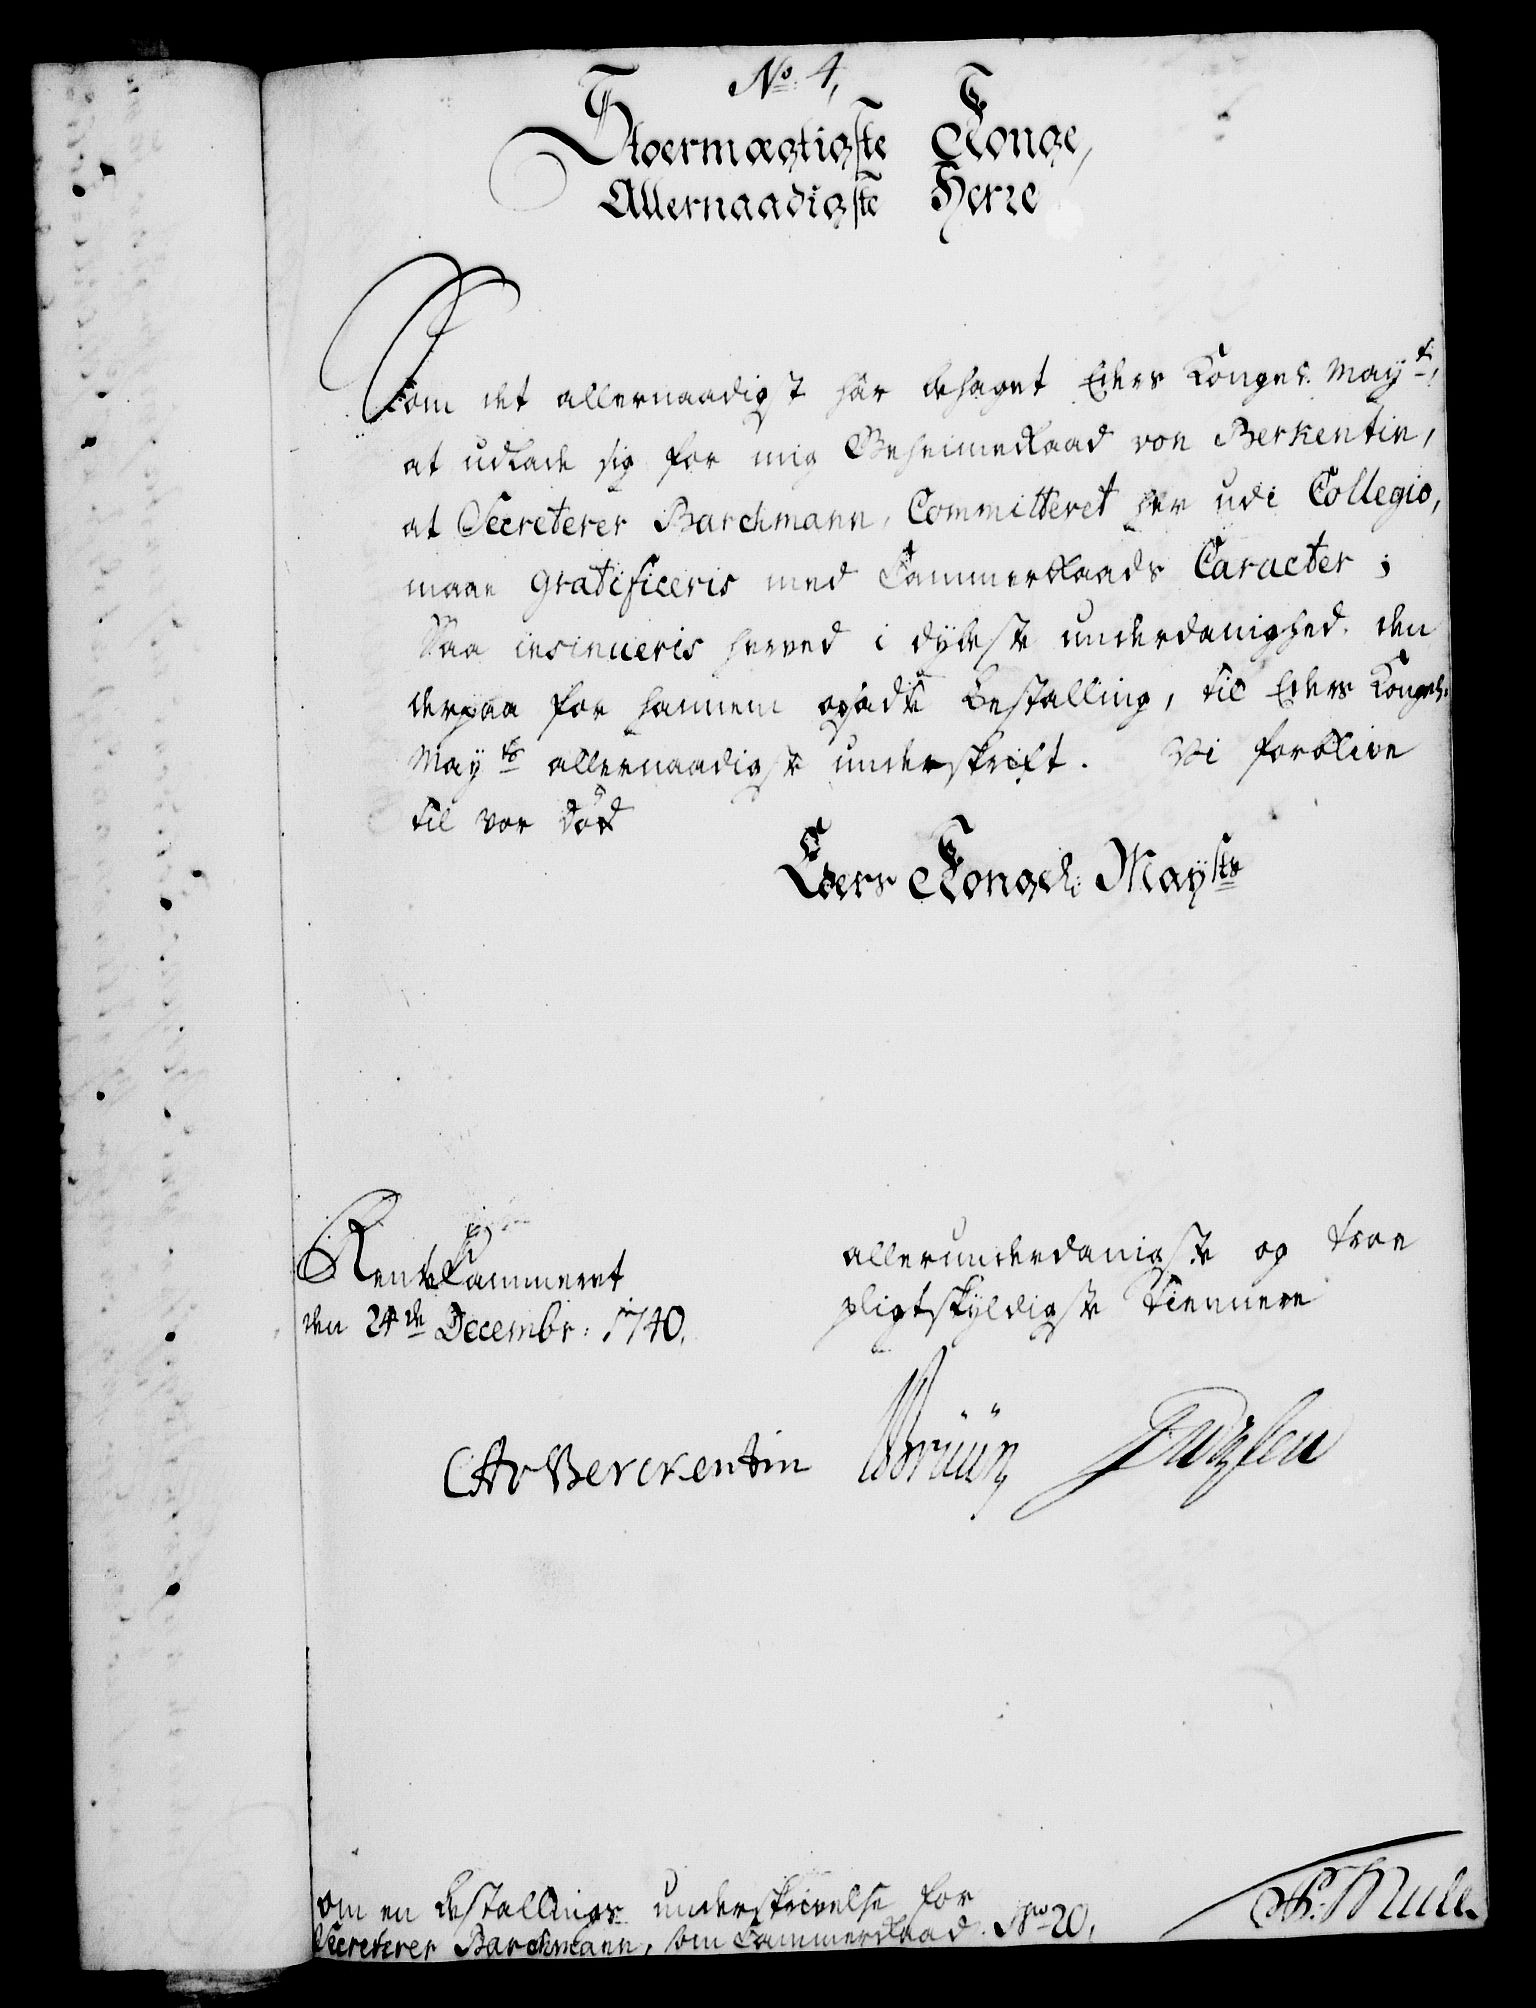 No. 4,
Stoermægtigste Konge,
Allernaadigste Herre
Som det allernaadigst har behaget Eders Kongel: Mayt:,
at udlade sig for mig Geheimeraad von Berkentin,
at Secreterer Barchmann, Committeret her udi Collegio,
maae gratificeris med Cammerraads Caracter;
Saa insinueris herved i dybeste underdanighed den
derpaa for hannem opsadte Bestalling, til Eders Kongel:
Mayts allernaadigste underskrift. Vi forblive
til vor død
Eders Kongel: Maysts
RenteKammeret
den 24de Decembr: 1740.
allerunderdanigste og troe
pligtskyldigste tiennere
CAvBerckentin
om en bestallings underskrivelse for
Secreterer Barchmann, som Cammerraad. No 20.